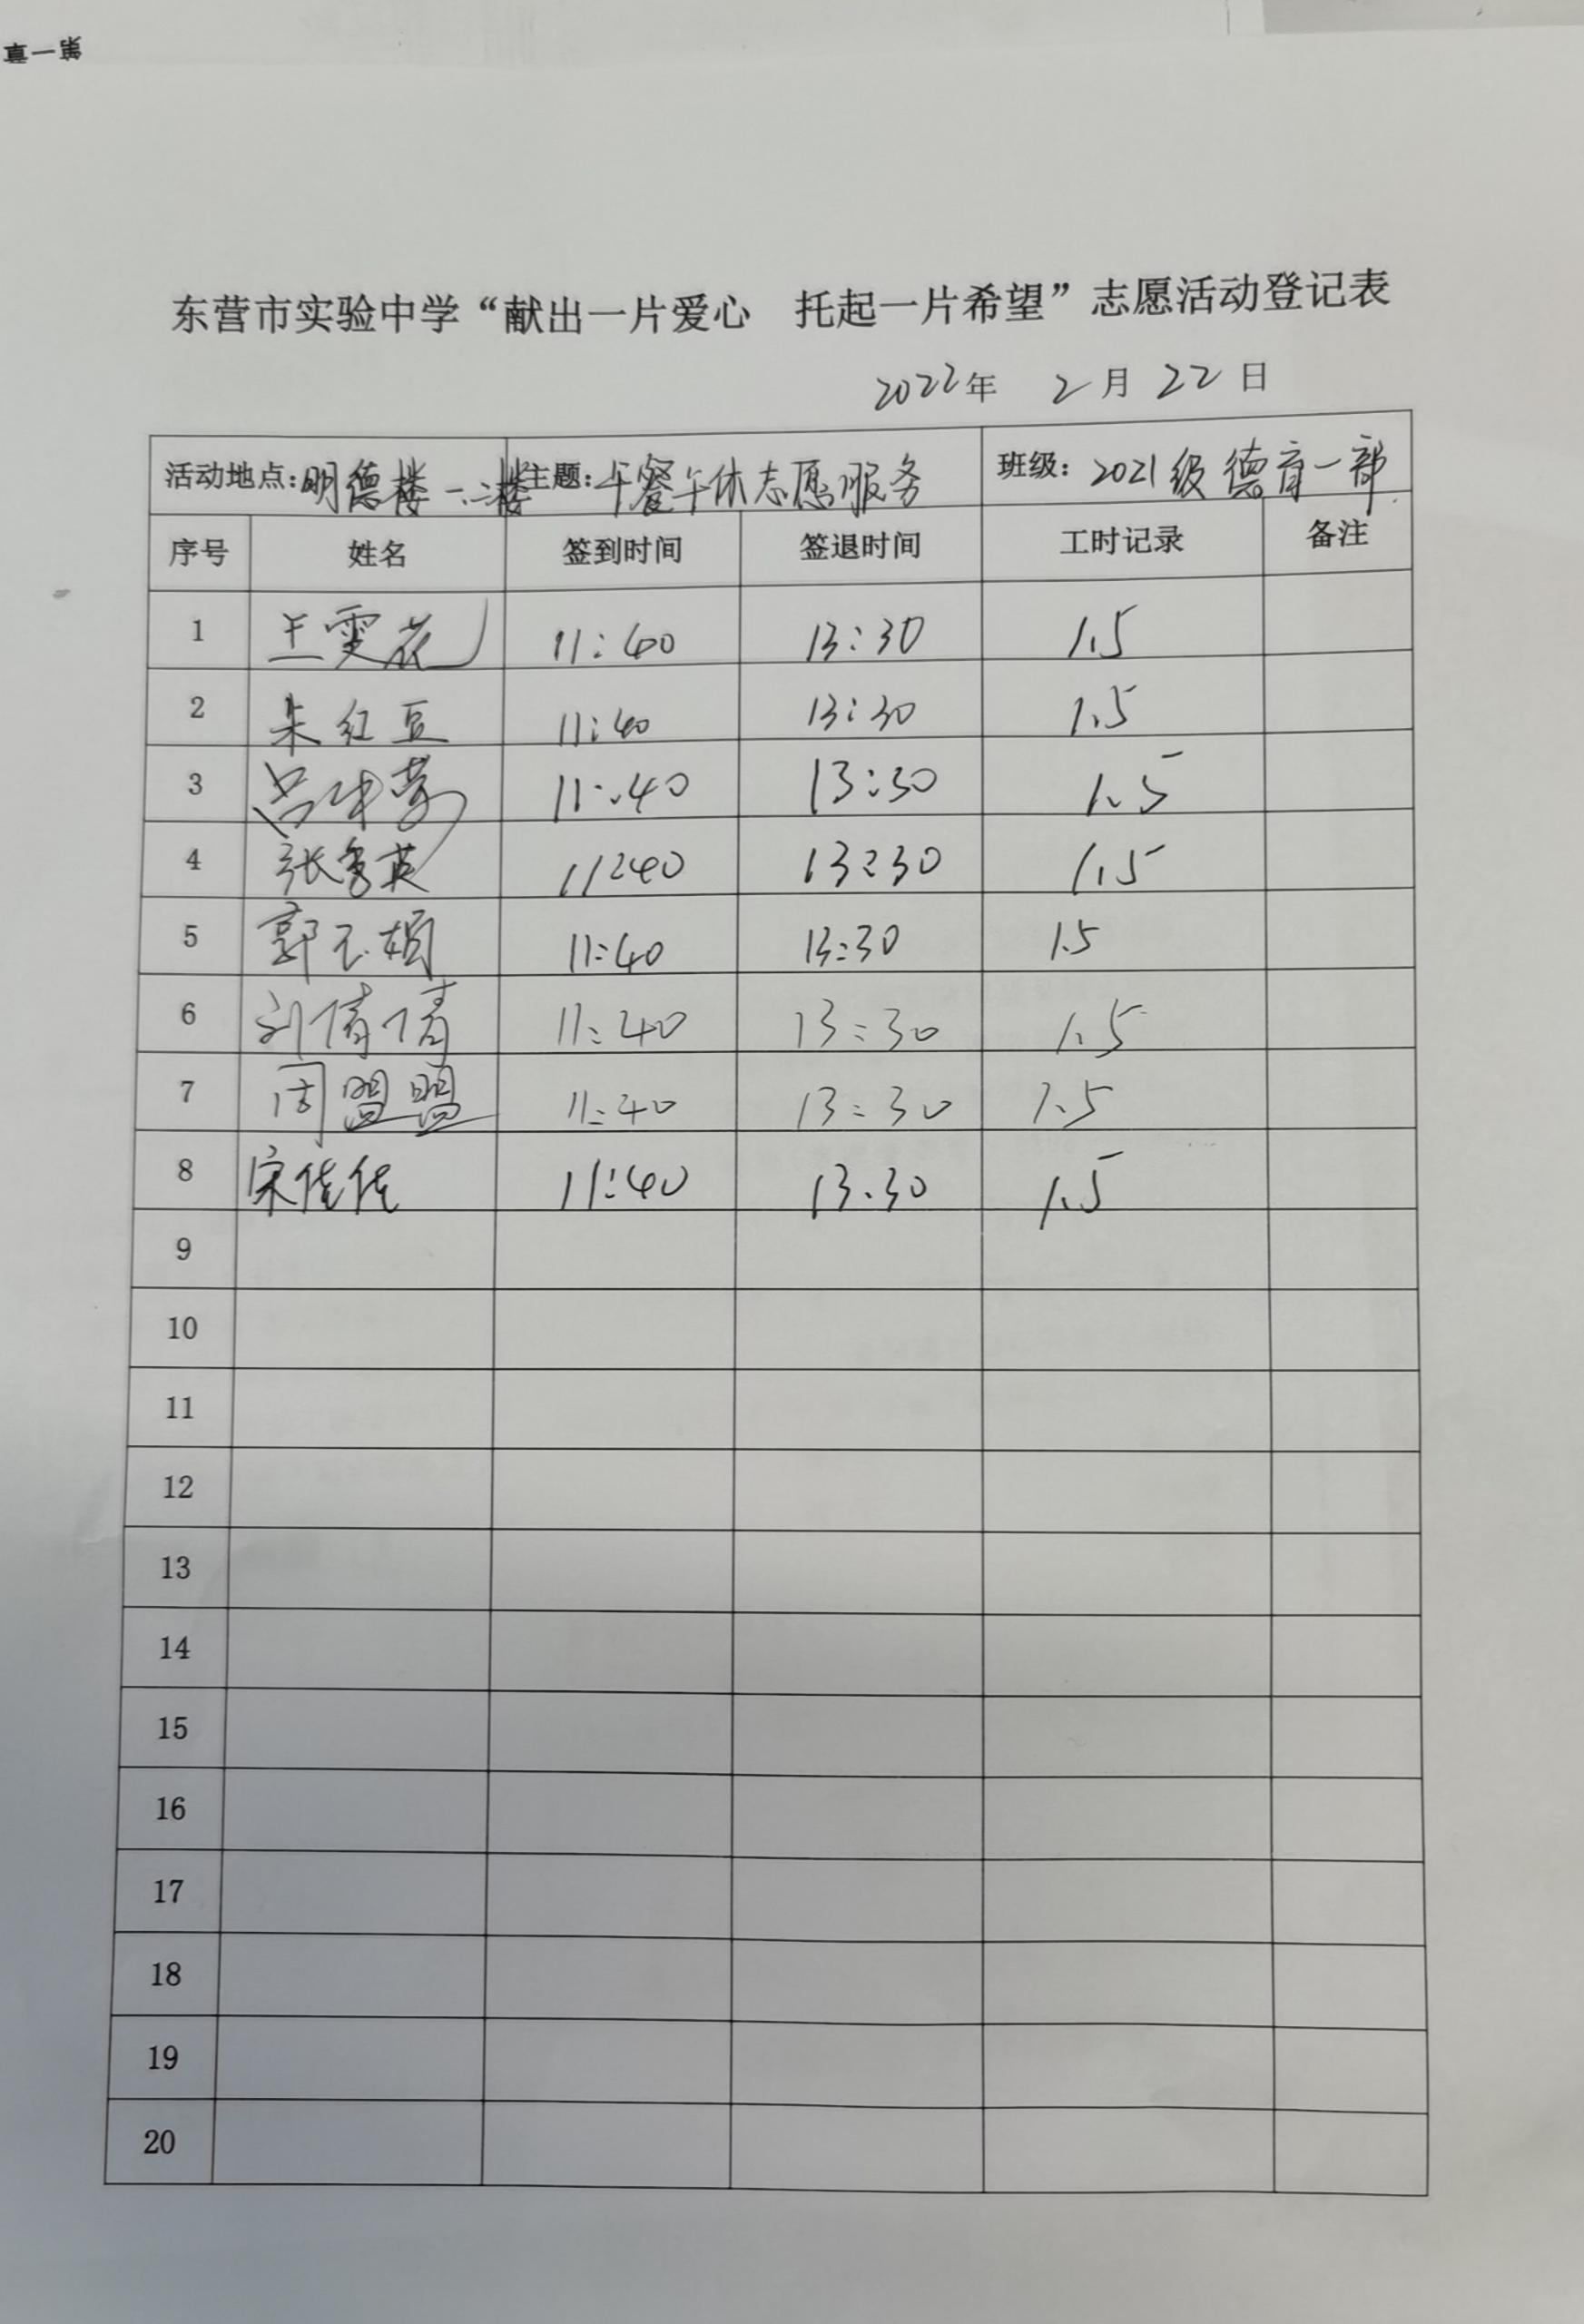 第一章
东营市实验中学“献出一片爱心 托起一片希望”志愿活动登记表
2022年 2月22日
活动地点:明德楼一.二楼 主题:午餐午休志愿服务 班级:2021级德育一部
序号 姓名 签到时间 签退时间 工时记录 备注
1 王雯花 11:40 13:30 1.5
2 朱红豆 11:40 13:30 1.5
3 吕 11:40 13:30 1.5
4 张秀英 11:40 13:30 1.5
5 郭 娟 11:40 13:30 1.5
6 刘倩倩 11:40 13:30 1.5
7 周盟盟 11:40 13:30 1.5
8 宋佳佳 11:40 13.30 1.5
9
10
11
12
13
14
15
16
17
18
19
20